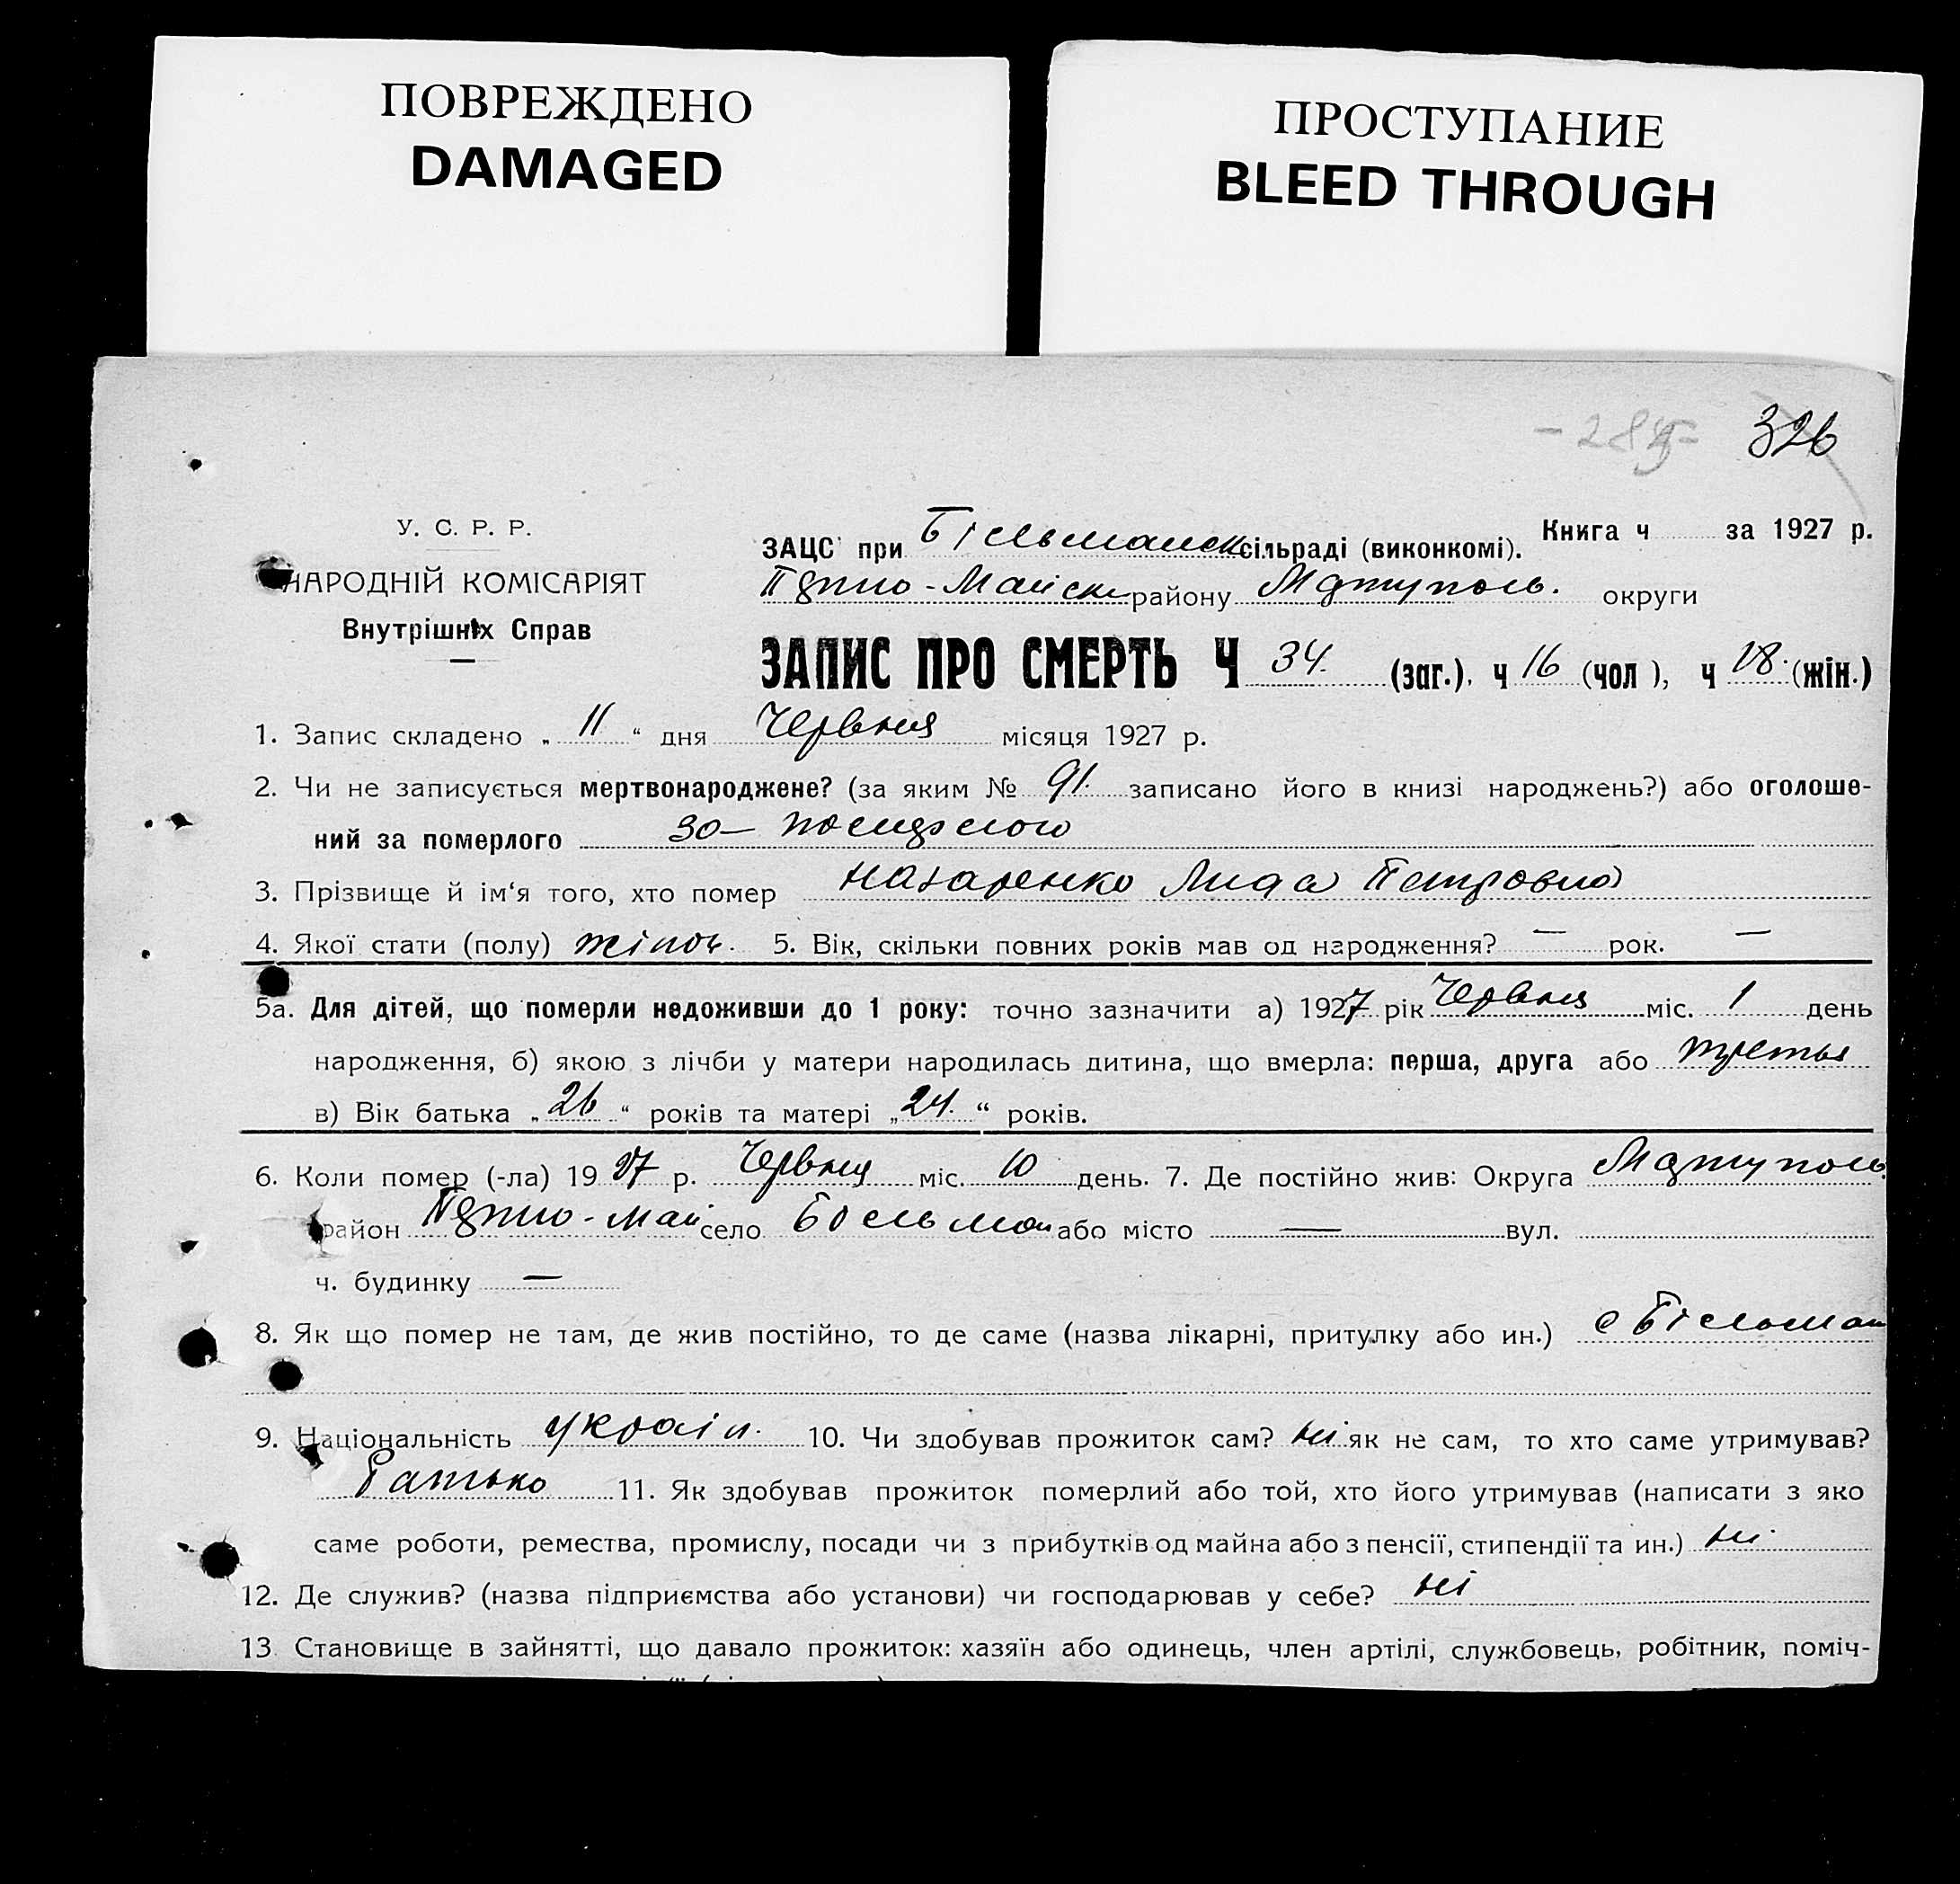 ПОВРЕЖДЕНО
DAMAGED
ПРОСТУПАНИЕ
BLEED THROUGH
326
У. С. Р. Р.
НАРОДНІЙ КОМІСАРІЯТ
Внутрішніх Справ
Книга ч за 1927 р.
ЗАЦС при Більманск сільраді (виконкомі).
району Мариуполь. округи
ЗАПИС ПРО СМЕРТЬ Ч 34. (заг.), ч 16 (чол), ч 18. (жін.)
1. Запис складено „ 11 “ дня Червня місяця 1927 р.
2. Чи не записується мертвонароджене? (за яким № 91. записано його в книзі народжень?) або оголоше-
ний за померлого
3. Прізвище й ім‘я того, хто помер Назаренко Лида Петровна
4. Якої стати (полу) жіноч. 5. Вік, скільки повних років мав од народження? — рок. —
5а. Для дітей, що померли недоживши до 1 року: точно зазначити а) 1927 рік Червня міс. 1 день
народження, б) якою з лічби у матери народилась дитина, що вмерла: перша, друга або третья
в) Вік батька „ 26 “ років та матері „ 24. “ років.
6. Коли помер (-ла) 1927 р. Червня міс. 10 день. 7. Де постійно жив: Округа Мариуполь.
район село або місто — вул.
ч. будинку —
8. Як що помер не там, де жив постійно, то де саме (назва лікарні, притулку або ин.) с Більман
9. Національність україн. 10. Чи здобував прожиток сам? ні як не сам, то хто саме утримував?
Батько 11. Як здобував прожиток померлий або той, хто його утримував (написати з яко
саме роботи, ремества, промислу, посади чи з прибутків од майна або з пенсії, стипендії та ин.) ні.
12. Де служив? (назва підприємства або установи) чи господарював у себе? ні
13 Становище в зайнятті, що давало прожиток: хазяїн або одинець, член артілі, службовець, робітник, поміч-